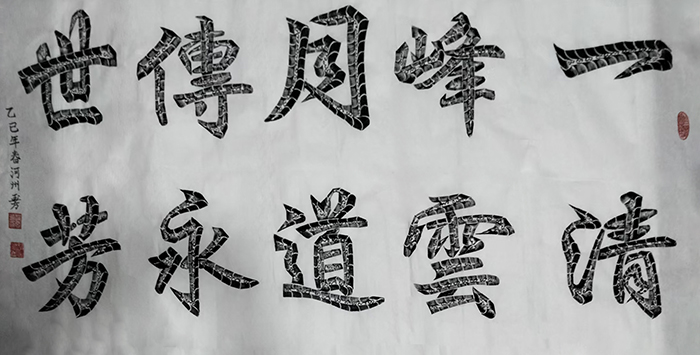 一清
峰雲
月道
傳永
世芳
乙巳年春河州